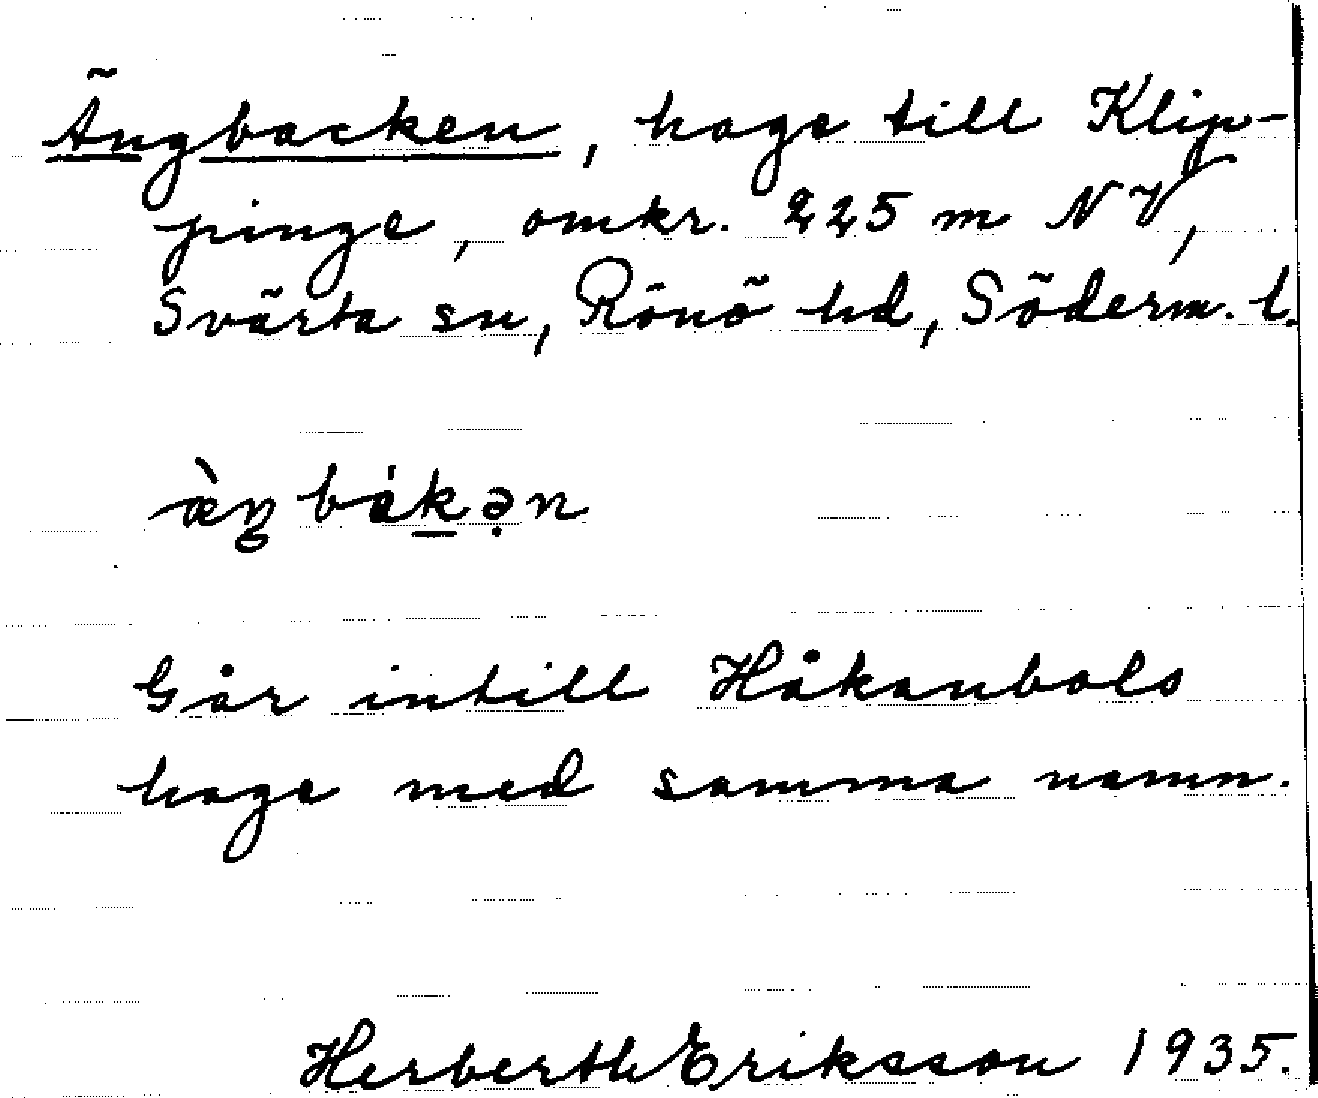 Ängbacken, hage till Klip-
pinge, omkr. 225 m NV,
Svärta sn, Rönö hd, Söderm. l.
æ̀ŋbákən
Går intill Håkanbols
hage med samma namn.
Herberth Eriksson 1935.